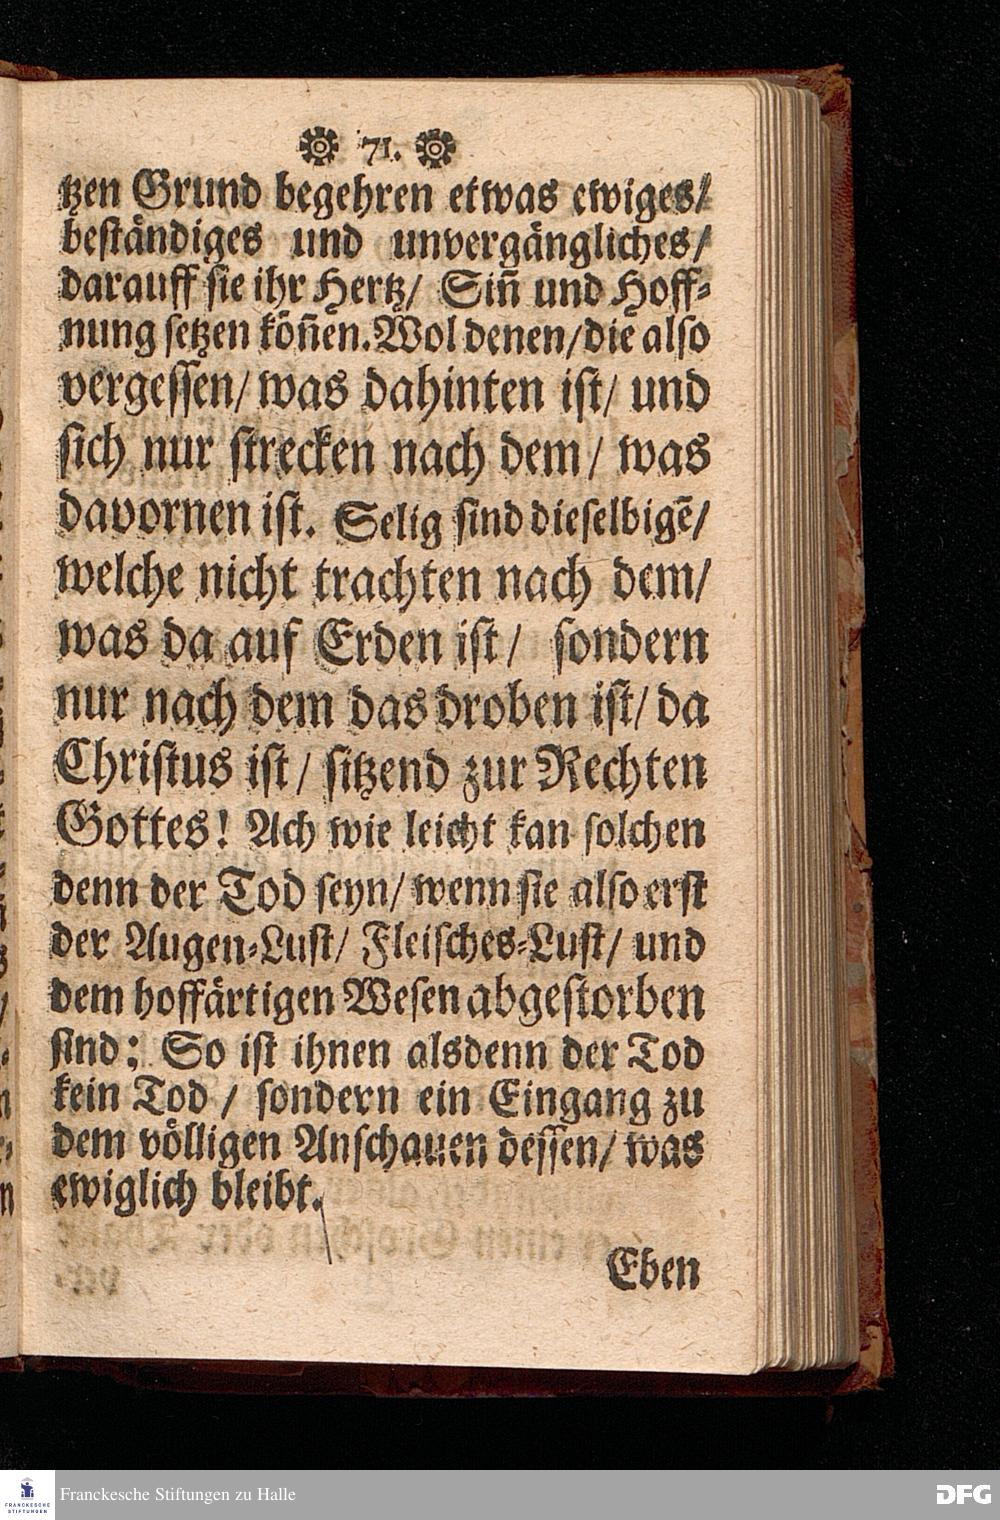 71.
tzen Grund begehren etwas ewiges/
beständiges und unvergängliches/
darauff sie ihr Hertz/ Sin̄ und Hoff-
nung setzen kön̄en. Wol denen/ die also
vergessen/ was dahinten ist/ und
sich nur strecken nach dem/ was
davornen ist. Selig sind dieselbigē/
welche nicht trachten nach dem/
was da auf Erden ist/ sondern
nur nach dem das droben ist/ da
Christus ist/ sitzend zur Rechten
Gottes! Ach wie leicht kan solchen
denn der Tod seyn/ wenn sie also erst
der Augen-Lust/ Fleisches-Lust/ und
dem hoffärtigen Wesen abgestorben
sind: So ist ihnen alsdenn der Tod
kein Tod/ sondern ein Eingang zu
dem völligen Anschauen dessen/ was
ewiglich bleibt.
Eben
FRANCKESCHE
STIFTUNGEN
Franckesche Stiftungen zu Halle
DFG